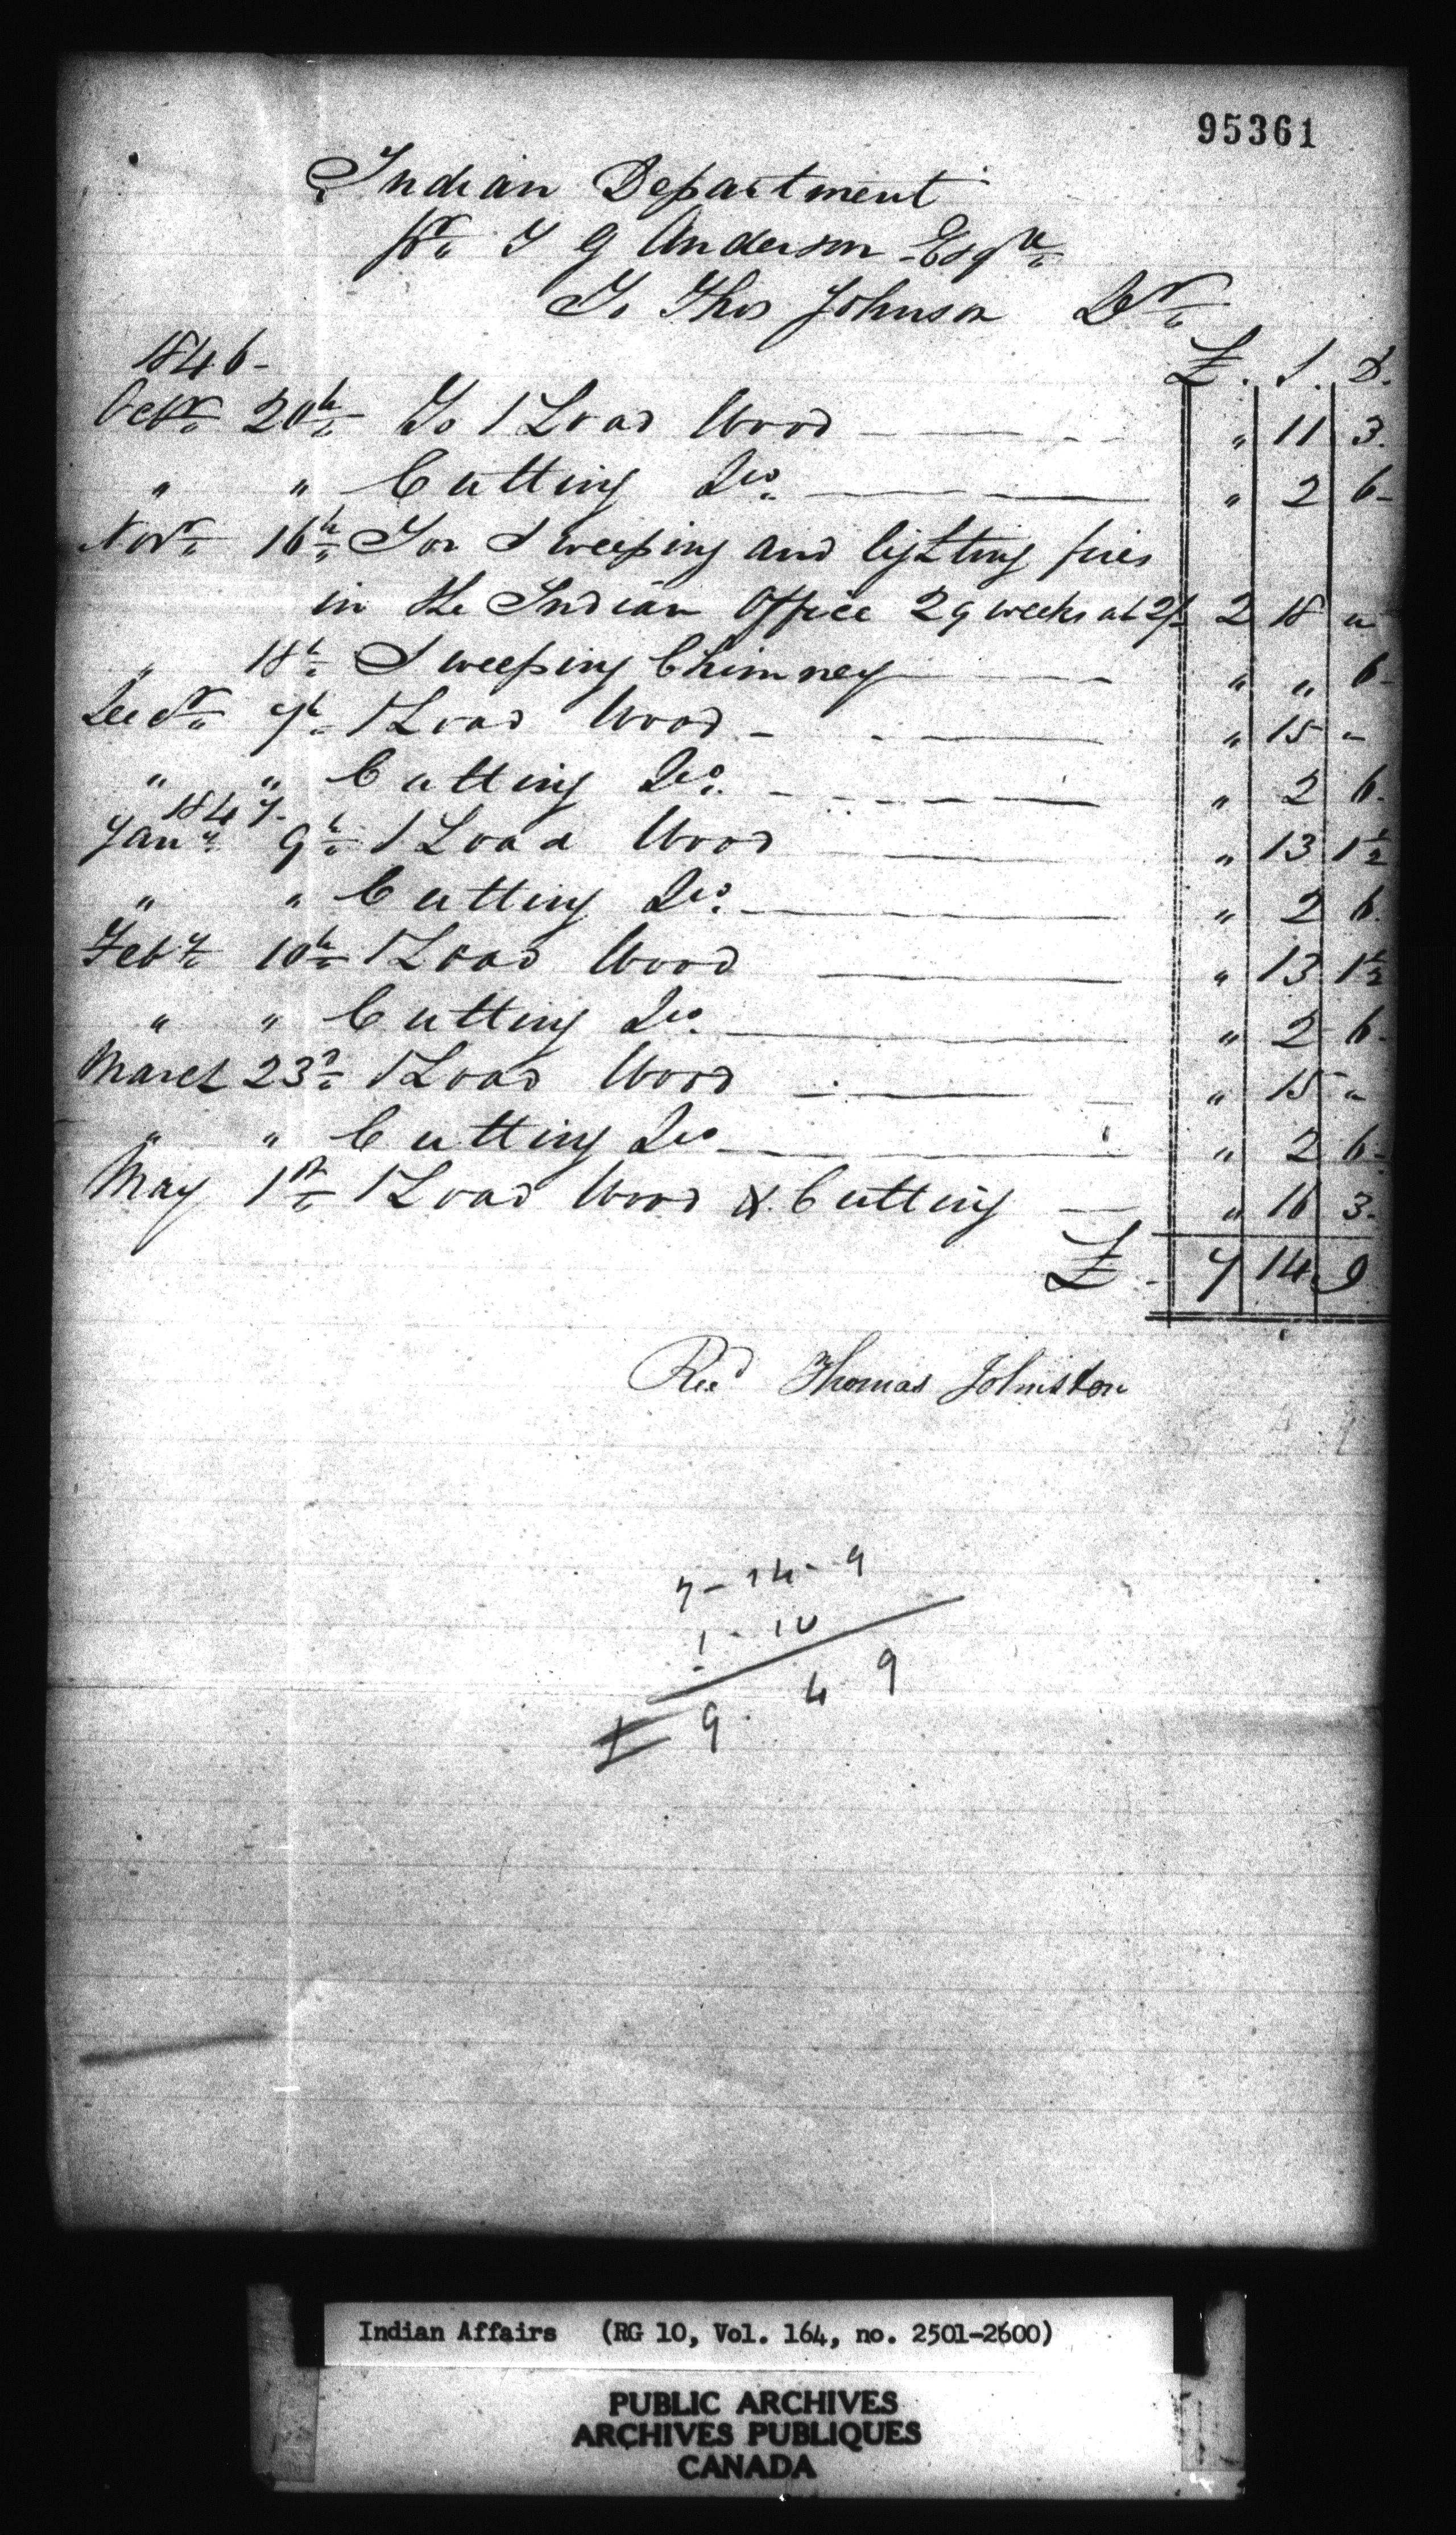 95361
Indian Department
pr T G Anderson Esqre
To Thos Johnson Dr
1846- £. S. D.
Octr 20th To 1 Load Wood " 11 3.
" " Cutting Do. " 2 6-
Novr 16th For Sweeping and lighting fires
in the Indian Office 29 weeks at 2/- 2 18 "
" 18th Sweeping Chimney " " 6-
Decr 7th 1 Load Wood - " 15 "
" " Cutting Do. " 2 6.
1847-
Jany 9th 1 Load Wood " 13 1½
" " Cutting Do. " 2 6.
Feby 10th 1 Load Wood " 13 1½
" " Cutting Do. " 2 6-
March 23d 1 Load Wood " 15 "
" " Cutting Do " 2 6-
May 1st 1 Load Wood & Cutting " 16 3.
£ - 7 14 9
Recd Thomas Johnston
7 - 14 - 9
1 - 10
£ 9. 4 9
Indian Affairs (RG 10, Vol. 164, no. 2501-2600)
PUBLIC ARCHIVES
ARCHIVES PUBLIQUES
CANADA